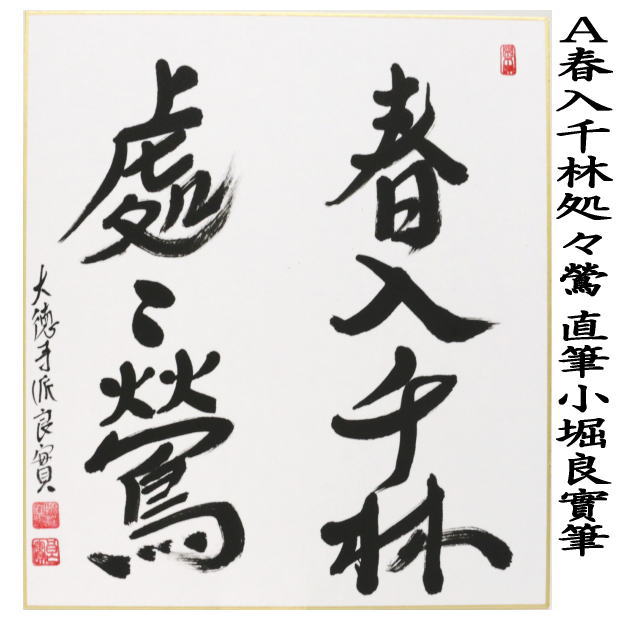 A春入千林処々鶯 直筆小堀良實筆
春入千林
處〻鶯
大徳寺派良實